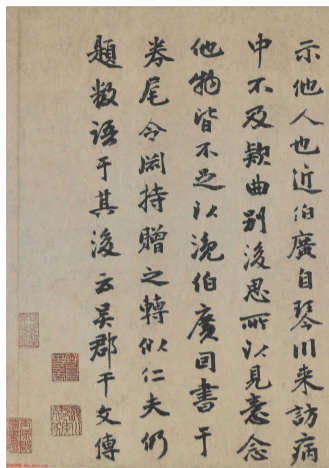 示他人也近伯廣自琴川来訪病
中不及欵曲別後思所以見意念
他物皆不足以浼伯廣回書于
卷尾令持贈之轉似仁夫仍
題数語于其後云吳郡干文傳